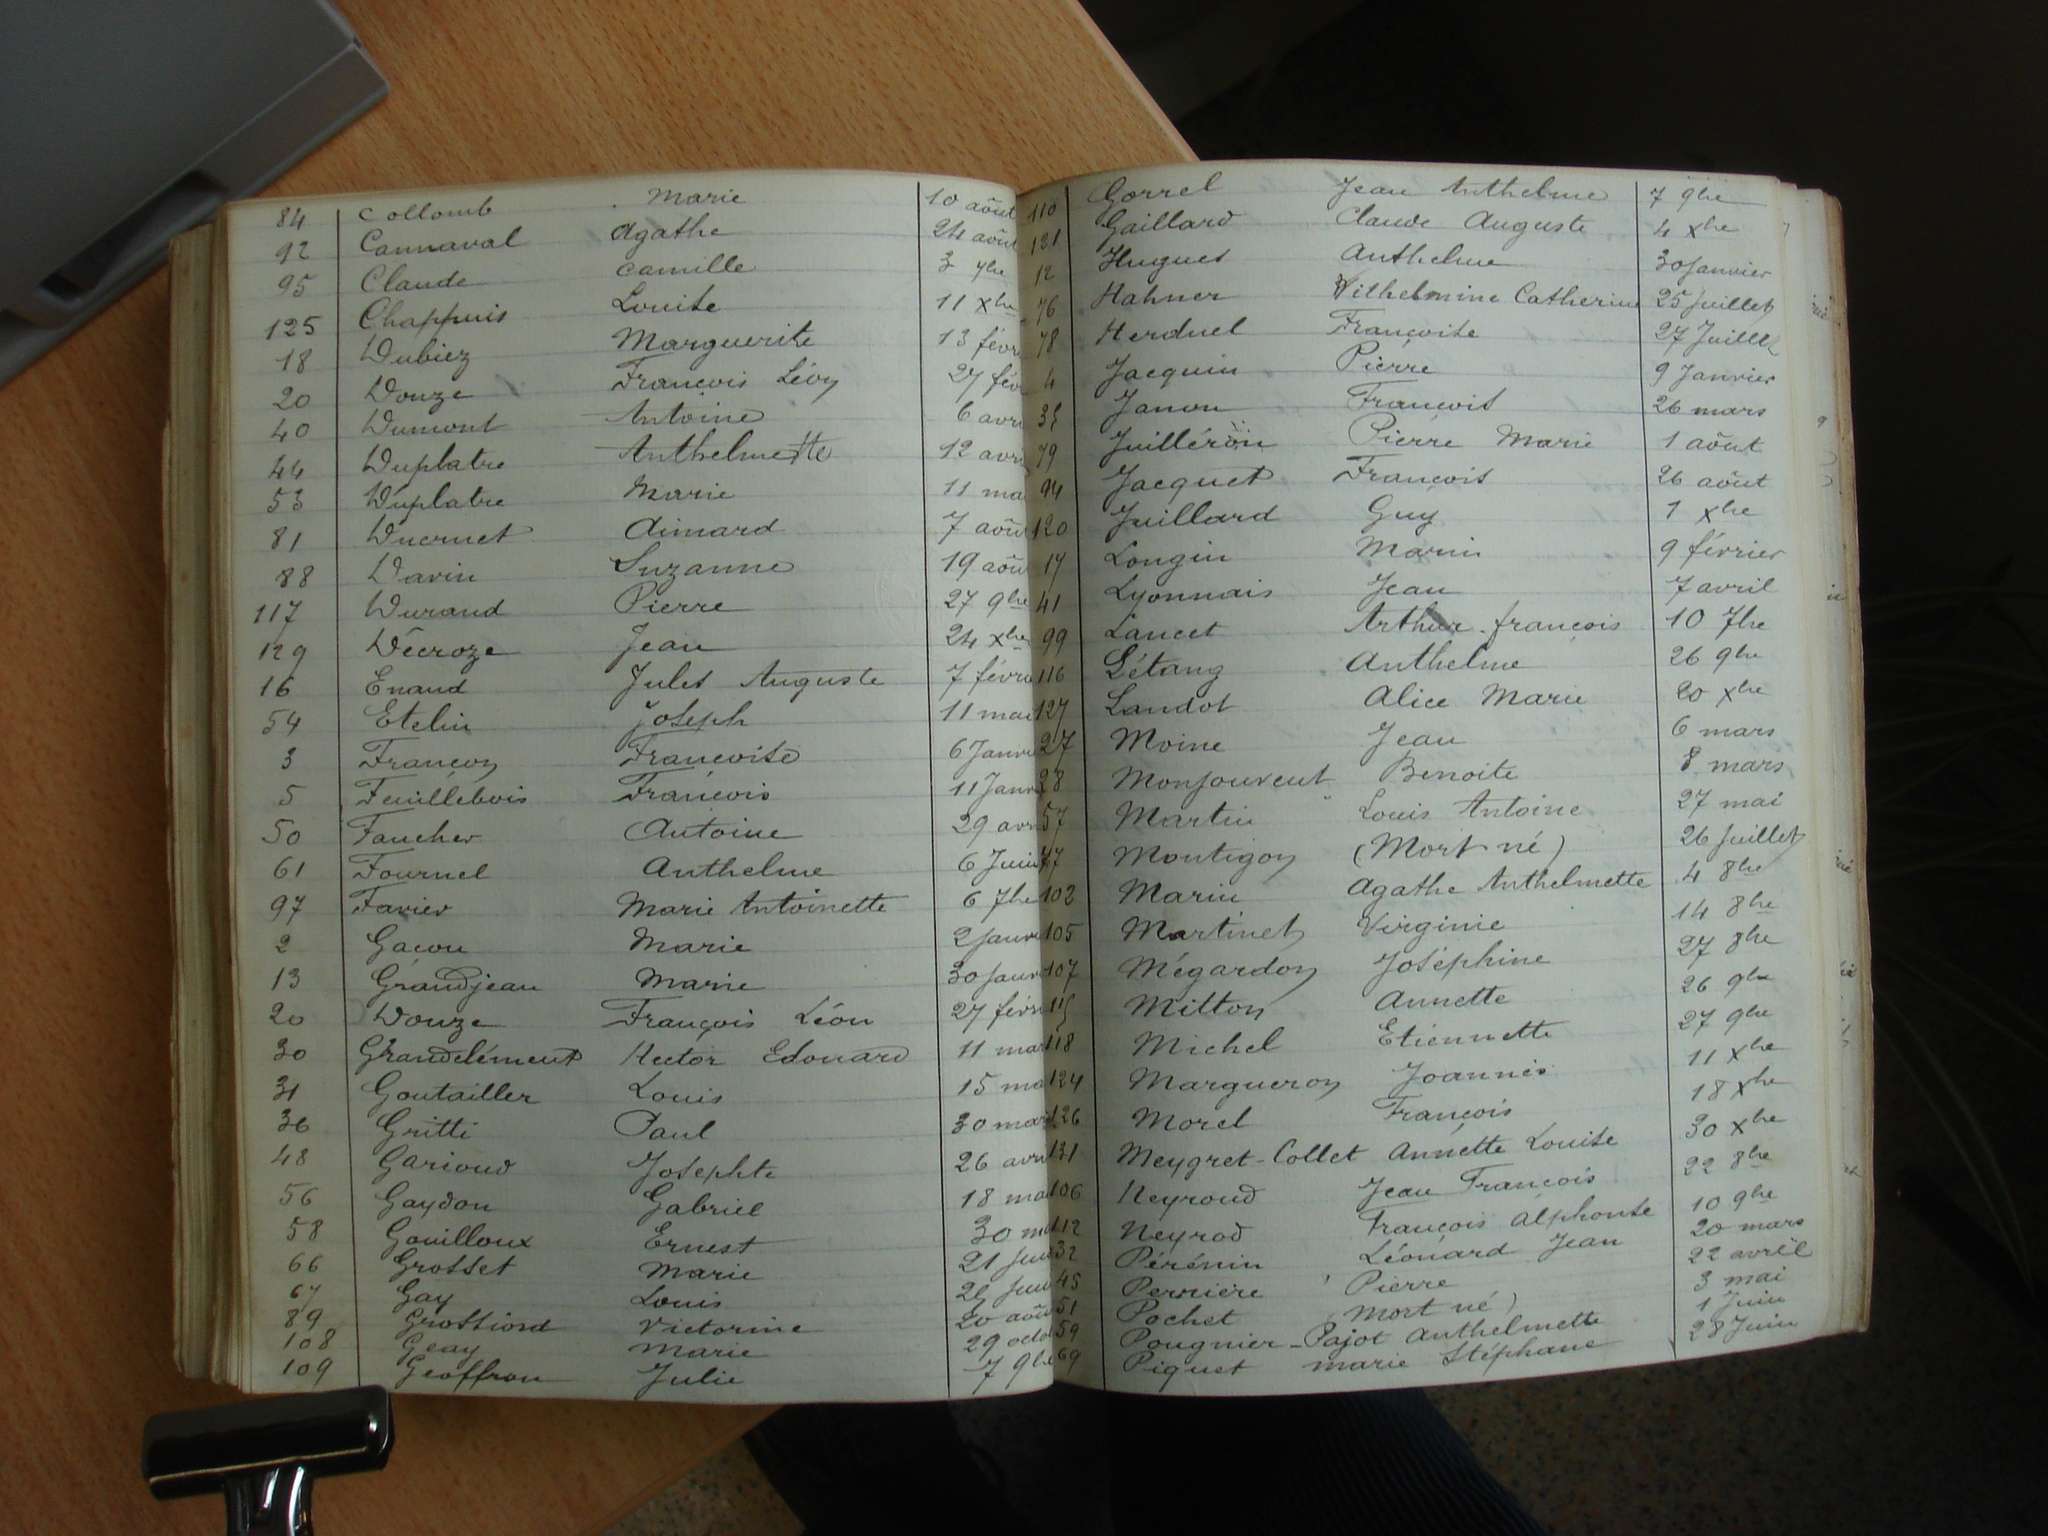 84 Collomb Marie 10 août
92 Cannaval Agathe 24 août
95 Claude Camille 3 7bre
125 Chappuis Louise 11 Xbre
18 Dubiez Marguerite 13 févri
20 Douze François Léon 27 fév
40 Dumont Antoine 6 avri
44 Duplatre Anthelmette 12 avri
53 Duplatre Marie 11 mai
81 Ducruet Aimard 7 août
88 Davin Suzanne 19 aoû
117 Durand Pierre 27 9bre
129 Décroze Jean 24 Xbre
16 Enaud Jules Auguste 7 févri
54 Etelin Joseph 11 mai
3 Françon Françoise 6 Janvi
5 Feuillebois François 11 Janvi
50 Faucher Antoine 29 avri
61 Fournel Anthelme 6 Juin
97 Favier Marie Antoinette 6 7bre
2 Gaçon Marie 2 Janvi
13 Grandjean Marie 30 Janvi
20 Douze François Léon 27 févri
30 Grandclément Hector Edouard 11 mar
31 Goutailler Louis 15 ma
36 Gritti Paul 30 mars
48 Garioud Josephte 26 avri
56 Gaydon Gabriel 18 mai
58 Gouilloux Ernest 30 mai
66 Grosset Marie 21 Juin
67 Gay Louis 26 Juin
89 Grossiord Victorine 20 août
108 Geay Marie 29 octo
109 Geoffron Julie 7 9bre
110 Gorrel Jean Anthelme 7 9bre
121 Gaillard Claude Auguste 4 Xbre
12 Hugues Anthelme 30 Janvier
76 Hahner Vilhelmine Catherine 25 Juillet
78 Herduel Françoise 27 Juillet
4 Jacquin Pierre 9 Janvier
35 Janon François 26 mars
79 Juilléron Pierre Marie 1 août
94 Jacquet François 26 août
120 Juillard Guy 1 Xbre
17 Longin Marin 9 février
41 Lyonnais Jean 7 avril
99 Lancet Arthur françois 10 7bre
116 Létang Anthelme 26 9bre
127 Landot Alice Marie 20 Xbre
27 Moine Jean 6 mars
28 Monjouvent Benoite 8 mars
57 Martin Louis Antoine 27 mai
77 Montigon (Mort né) 26 Juillet
102 Marin Agathe Anthelmette 4 8bre
105 Martinet Virginie 14 8bre
107 Mégardon Joséphine 27 8bre
115 Mitton Annette 26 9bre
118 Michel Etiennette 27 9bre
124 Margueron Joannès 11 Xbre
126 Morel François 18 Xbre
131 Meygret-Collet Annette Louise 30 Xbre
106 Neyroud Jean François 22 8bre
112 Neyrod François Alphonse 10 9bre
32 Pérénin Léonard Jean 20 mars
45 Pernière Pierre 22 avril
51 Pochet (Mort né) 3 mai
59 Pougnier-Pajot Anthelmette 1 Juin
69 Piquet Marie Stéphane 28 Juin